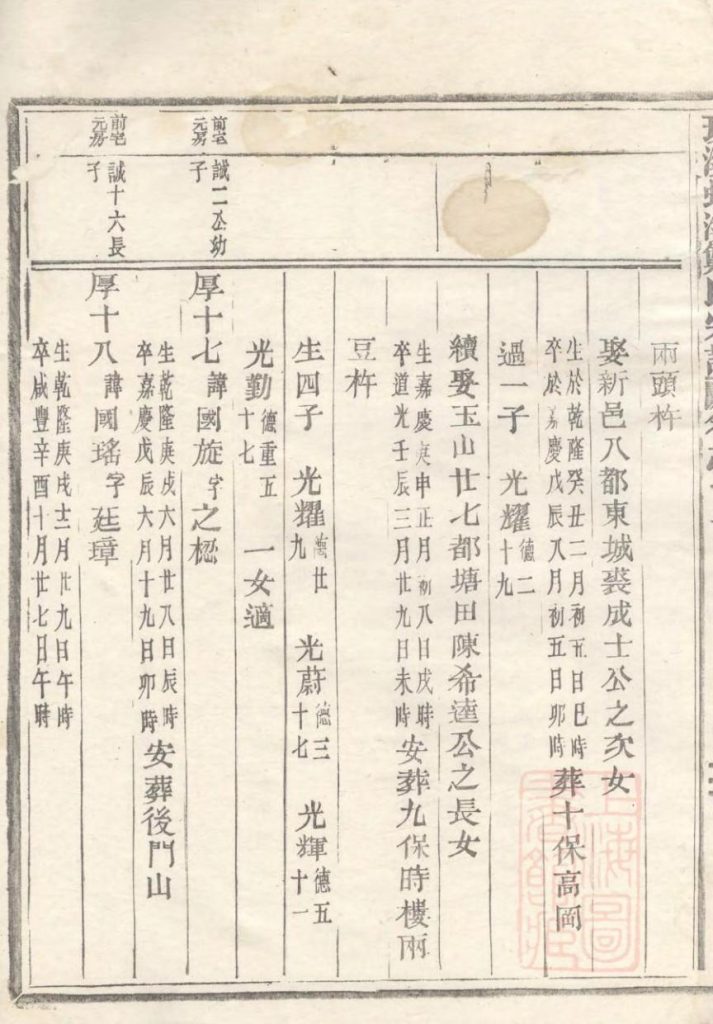 兩頭杵
娶新邑八都東城裘成士公之次女
生於乾隆癸丑二月初五日巳時
卒於嘉慶戊辰八月初五日卯時
葬十保高岡
過一子 光耀德二十九
續娶玉山廿七都塘田陳希達公之長女
生嘉慶庚申正月初八日戌時
卒道光壬辰三月廿九日未時
安葬九保時樓兩
豆杵
生四子 光耀 廿九 光蔚德三十七 光輝德五十一
光勤德重五十七 一女適
前宅元房
誠二公幼子
厚十七 諱國旋字之樅
生乾隆庚戌六月廿八日辰時
卒嘉慶戊辰六月十九日卯時
安葬後門山
前宅元房
誠十六長子
厚十八 諱國瑤字廷璋
生乾隆庚戌十二月廿九日午時
卒咸豐辛酉十月廿七日午時